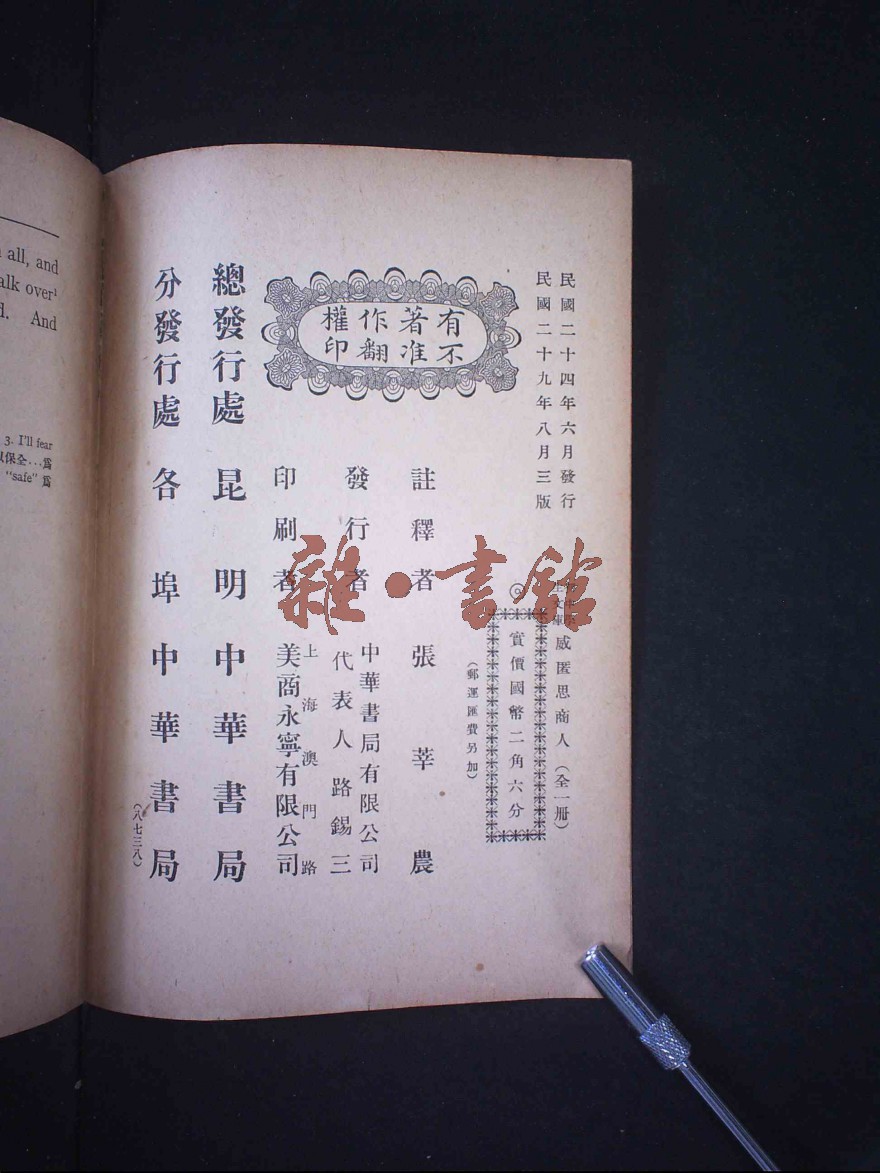 民國二十四年六月發行
民國二十九年八月三版
威匿思商人（全一册）
◎實價國幣二角六分
（郵運匯費另加）
有著作權
不准翻印
註釋者 張莘農
發行者 中華書局有限公司
代表人路錫三
印刷者 上海澳門路
美商永寧有限公司
總發行處 昆明中華書局
分發行處 各埠中華書局
（八七三八）
all, and
alk over¹
And
3. I'll fear
以保全...爲
"safe" 爲
雜·書館